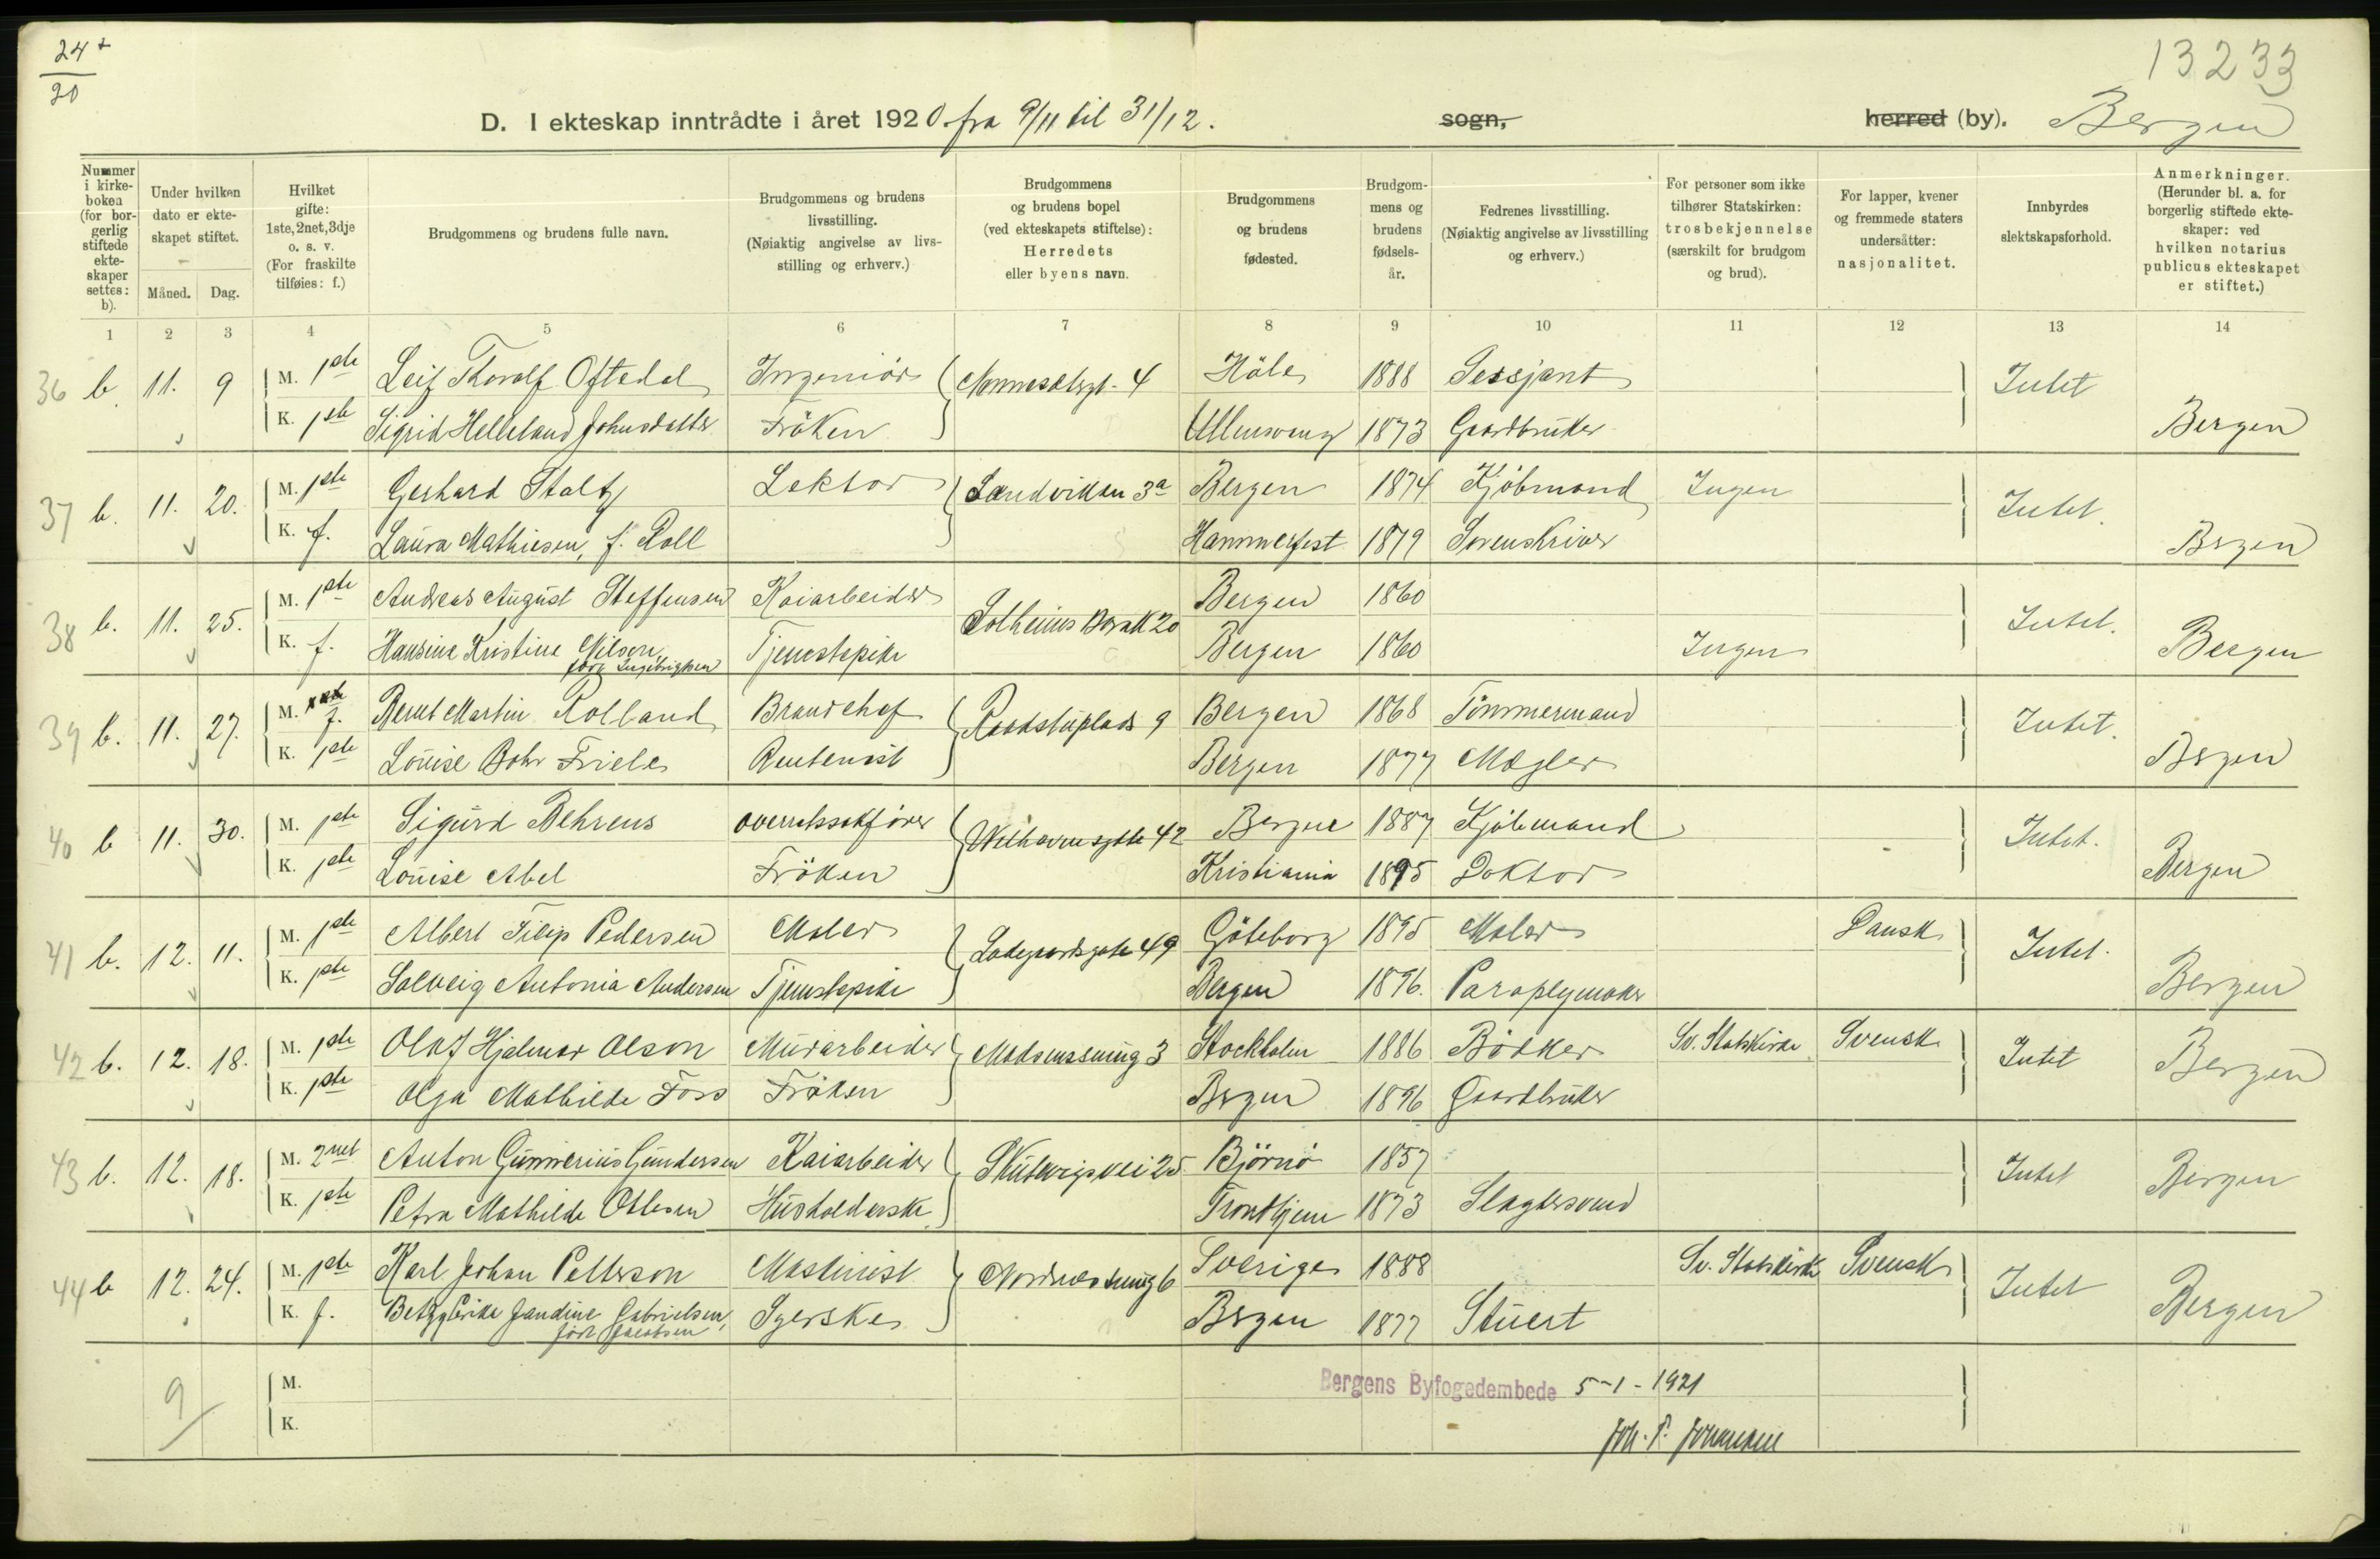 24+
20
13233
D. I ekteskap inntrådte i året 1920 fra 9/11 til 31/12. sogn, herred (by). Bergen
Nummer i kirkeboken (for borgerlig stiftede ekteskaper settes: b).
Under hvilken dato er ekteskapet stiftet.
Måned. Dag.
Hvilket gifte: 1ste, 2net, 3dje o. s. v. (For fraskilte tilføies: f.)
Brudgommens og brudens fulle navn.
Brudgommens og brudens livsstilling. (Nøiaktig angivelse av livsstilling og erhverv.)
Brudgommens og brudens bopel (ved ekteskapets stiftelse): Herredets eller byens navn.
Brudgommens og brudens fødested.
Brudgommens og brudens fødselsår.
Fedrenes livsstilling. (Nøiaktig angivelse av livsstilling og erhverv.)
For personer som ikke tilhører Statskirken: trosbekjennelse (særskilt for brudgom og brud).
For lapper, kvener og fremmede staters undersåtter: nasjonalitet.
Innbyrdes slektskapsforhold.
Anmerkninger. (Herunder bl. a. for borgerlig stiftede ekteskaper: ved hvilken notarius publicus ekteskapet er stiftet.)
1 2 3 4 5 6 7 8 9 10 11 12 13 14
36 b. 11. 9 M. 1ste Leif Thorolf Oftedal Ingeniör 4 Höle 1888 Sersjant Intet
K. 1ste Sigrid Helleland Johnsdatter Fröken Ullensvang 1873 Gaardbruker Bergen
37 b. 11. 20. M. 1ste Gerhard Stoltz Lektor Sandviken 3a Bergen 1874 Kjöbmand Ingen Intet.
K. f. Laura Mathiesen, f. Roll Hammerfest 1879 Sorenskriver Bergen
38 b. 11. 25. M. 1ste Andreas August Steffensen Kaiarbeider Solheims 20 Bergen 1860 Intet.
K. f. Hansine Kristine Nilsen, född Ingebrigtsen Tjenestepike Bergen 1860 Ingen Bergen
39 b. 11. 27. M. f. Bernt Martin Rolland Brandchef Raadstuplads 9 Bergen 1868 Tömmermand Intet.
K. 1ste Louise Bohr Friele Rentenist Bergen 1877 Mægler Bergen
40 b 11. 30. M. 1ste Sigurd Behrens overretssakförer Welhavensgate 42 Bergen 1887 Kjöbmand Intet.
K. 1ste Louise Abel Fröken Kristiania 1895 Doktor Bergen
41 b. 12. 11. M. 1ste Albert Filip Pedersen Maler Ladegaardsgate 49 Göteborg 1895 Maler Dansk Intet.
K. 1ste Solveig Antonia Andersen Tjenestepike Bergen 1896. Paraplymaker Bergen
42 b. 12. 18. M. 1ste Olof Hjalmar Olson Murarbeider 3 Stockholm 1886 Bödker Sv. Statskirke Svensk Intet Bergen
K. 1ste Olga Mathilde Foss Fröken Bergen 1896 Gaardbruker
43 b. 12. 18. M. 2net Anton Gunnerius Gundersen Kaiarbeider Skutevigsvei 25 Björnö 1857 Intet Bergen
K. 1ste Petra Mathilde Ottesen Husholderske Trondhjem 1873 Slagtersvend
44 b 12. 24. M. 1ste Karl Johan Petterson Maskinist 6 Sverige 1888 Sv. Statskirke Svensk Intet
K. f. Betzy Erika Jandine Gabrielsen, född Jacobsen Syerske Bergen 1877 Stuert Bergen
9 M.
K.
Bergens Byfogedembede 5-1-1921
Joh. P. Johannesen